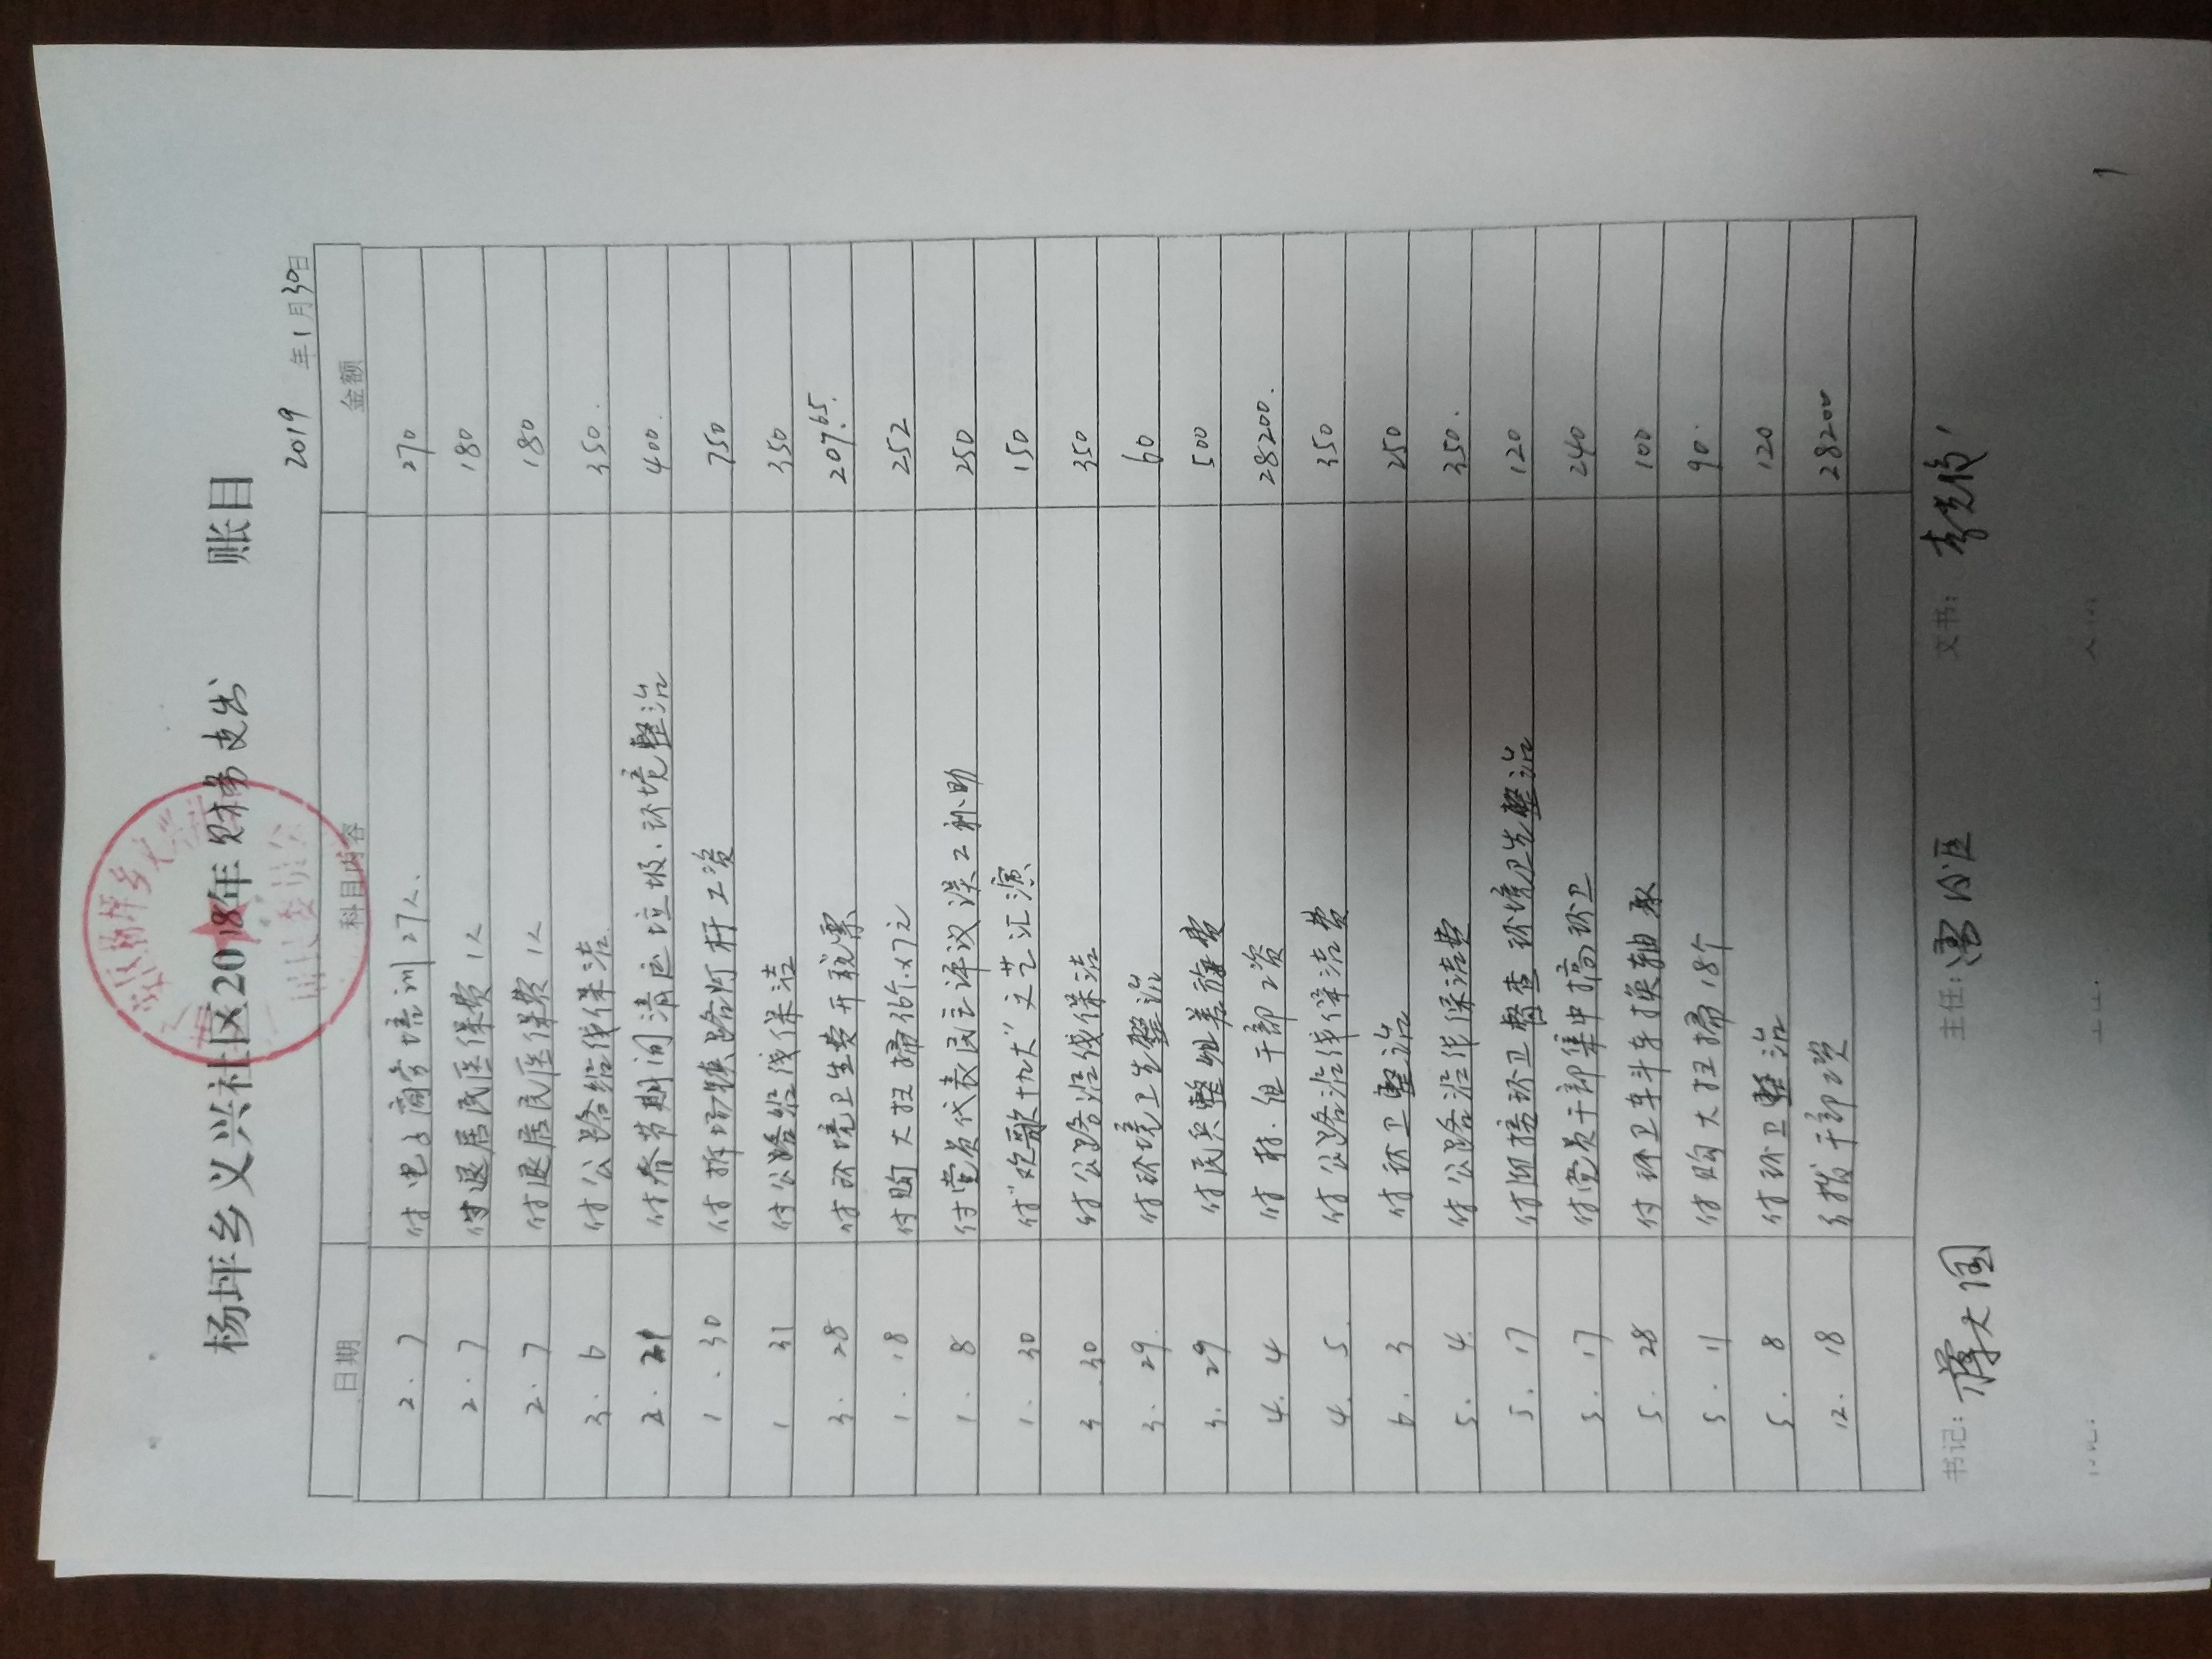 杨坪乡义兴社区2018年财务支出 账目
2019 年 1 月 30 日
日期 科目内容 金额
2.7 付电子商务培训27人. 270
2.7 付退居民医保费1人 180
2.7 付退居民医保费1人 180
3.6 付公路沿线保洁 350.
2.21 付春节期间清运垃圾.环境整治 400.
1.30 付拆场镇路灯杆工资 750
1 31 付公路沿线保洁 350
3.28 付环境卫生费开税票 207.65.
1.18 付购大扫扫36个×7元 252
1.8 付党员代表民主评议误工补助 250
1.30 付"欢歌十九大"文艺汇演 150
3.30 付公路沿线保洁 350
3.29. 付环境卫生整治 60
3.29 付民兵整组差旅费 500
4.4 付村.组干部工资 28200.
4.5. 付公路沿线保洁费 350
6.3 付环卫整治 250
5.4. 付公路沿线保洁费 350.
5.17 付迎接环卫督查环境卫生整治 120
5.17 付党员干部集中搞环卫 240
5.28 付环卫车斗车换轴承 100
5.11 付购大扫扫18个 90.
5.8 付环卫整治 120
12.18 干部工资 28200
书记: 大国 主任: 文书:
1